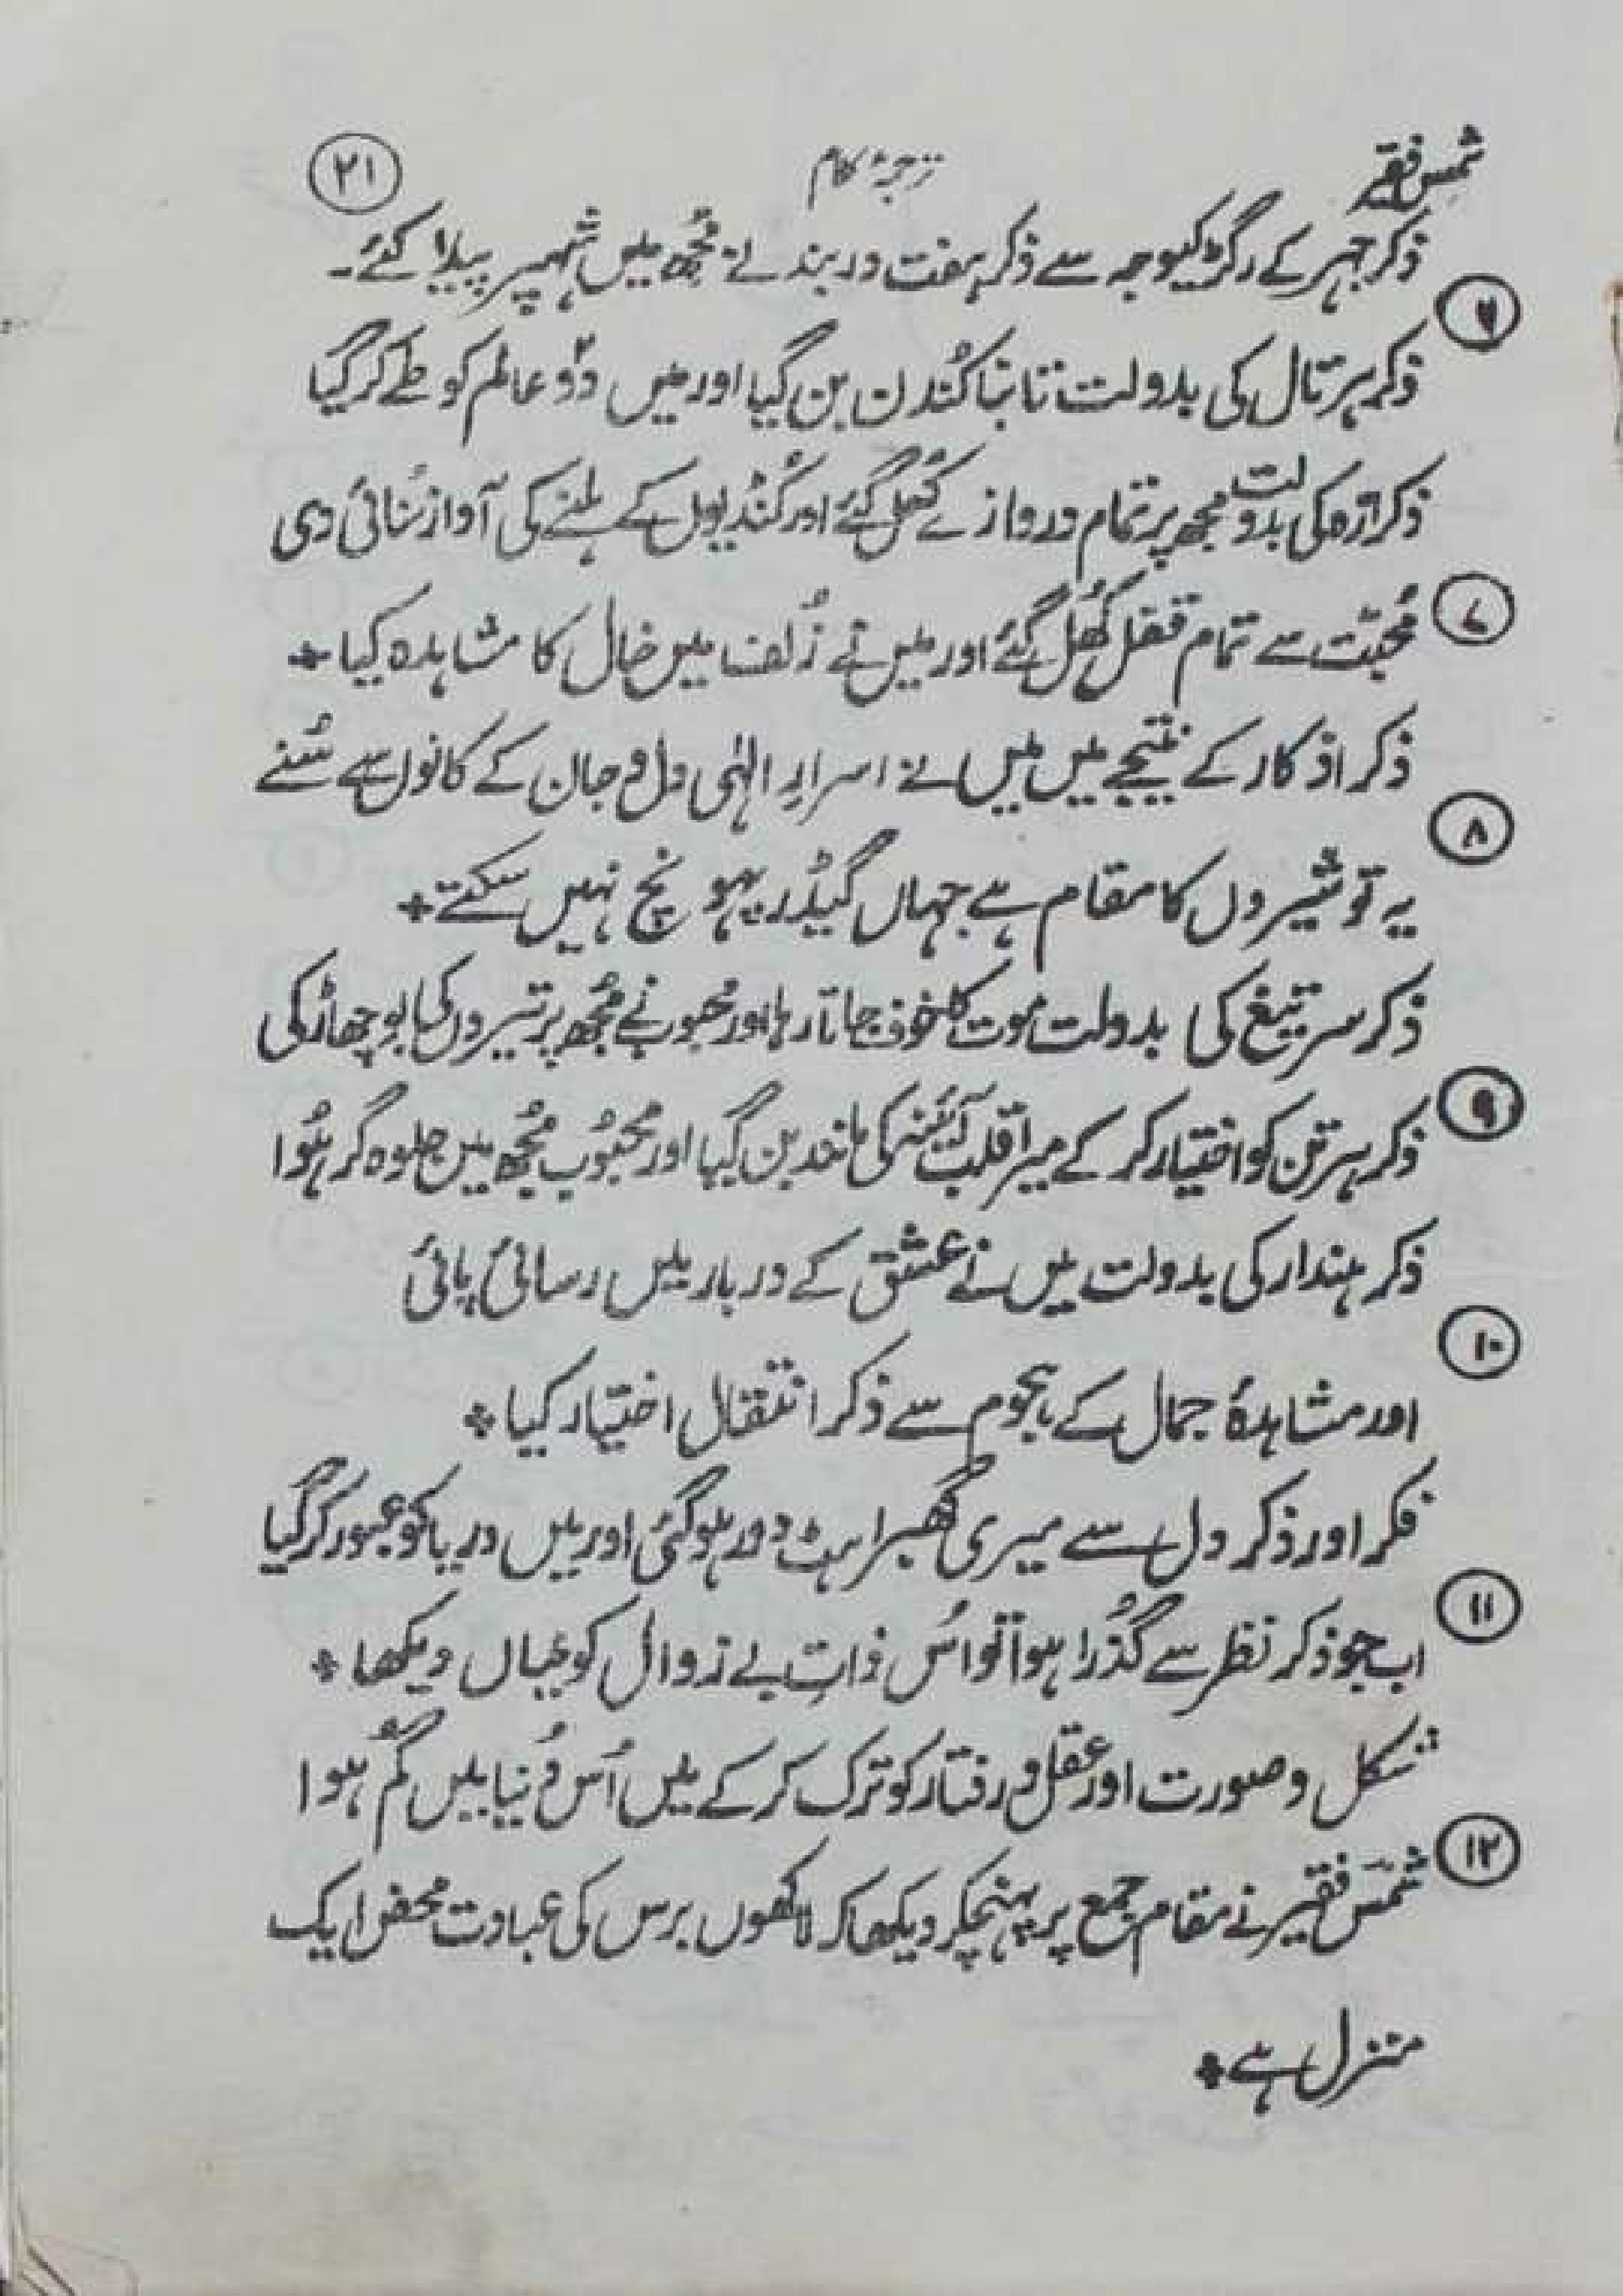 شمس فقیر ترجمۂ کلام ۲۱
ذکر جہر کے رگڑ کیوجہ سے ذکر ہفت در بند نے مُجھ میں شہپر پیدا کئے۔
۶
ذکر ہرتال کی بدولت تانبا کُندن بن گیا اور میں دُو عالم کو طے کر گیا
ذکر ارّہ کی بدولت مجھ پر تمام دروازے کُھل گئے اور کُنڈیوں کے ہلنے کی آواز سُنائی دی
۷
مُحبّت سے تمام قفل کُھل گئے اور میں نے زُلف میں خال کا مشاہدہ کیا *
ذکر اذکار کے نتیجے میں میں نے اسرارِ الہٰی دل و جان کے کانوں سے سُنے
۸
یہ تو شیروں کا مقام ہے جہاں گیدڑ پہونچ نہیں سکتے *
ذکر سر تیغ کی بدولت موت کا خوف جاتا رہا اور محبوب نے مُجھ پر تیروں کی بوچھاڑ کی
۹
ذکر ہر تن کو اختیار کر کے میرا قلب آئینہ کی مانند بن گیا اور محبُوب مُجھ میں جلوہ گر ہُوا
ذکر ہندار کی بدولت میں نے عشق کے دربار میں رسائی پائی
۱۰
اور مشاہدۂ جمال کے ہجوم سے ذکر انتقال اختیار کیا *
فکر اور ذکر دل سے میری گھبراہٹ دور ہو گئی اور میں دریا کو عبور کر گیا
۱۱
اب جو ذکر نظر سے گذُرا ہوا تو اُس ذاتِ بے زوال کو عیاں دیکھا *
شکل و صورت اور عقل و رفتار کو ترک کر کے میں اُس دُنیا میں گُم ہوا
۱۲
شمس فقیر نے مقام جمع پر پہنچکر دیکھا کہ لاکھوں برس کی عبادت محض ایک
منزل ہے *